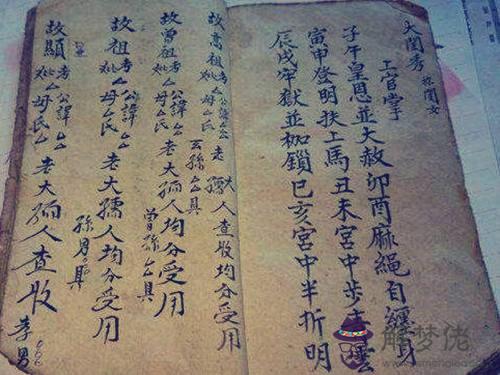 大閨秀 称閨女
上官掌
子午皇恩並大赦卯酉麻繩自纏身
寅申登明扶上馬丑未宮中步青雲
辰戌牢獄並枷鎖巳亥宮中半折明
故高祖考公諱ムム妣ム母ム氏老大孺人查收均分受用
玄孫ムム具
故曾祖考公諱ムム妣ム母ム氏老大孺人均分受用
曾孫ムム具
故祖考ム公諱ムム妣ム母ム氏老大孺人均分受用
孫男具
故顯考ム公諱ムム妣ム母ム氏老大孺人查收
孝男
解梦佬